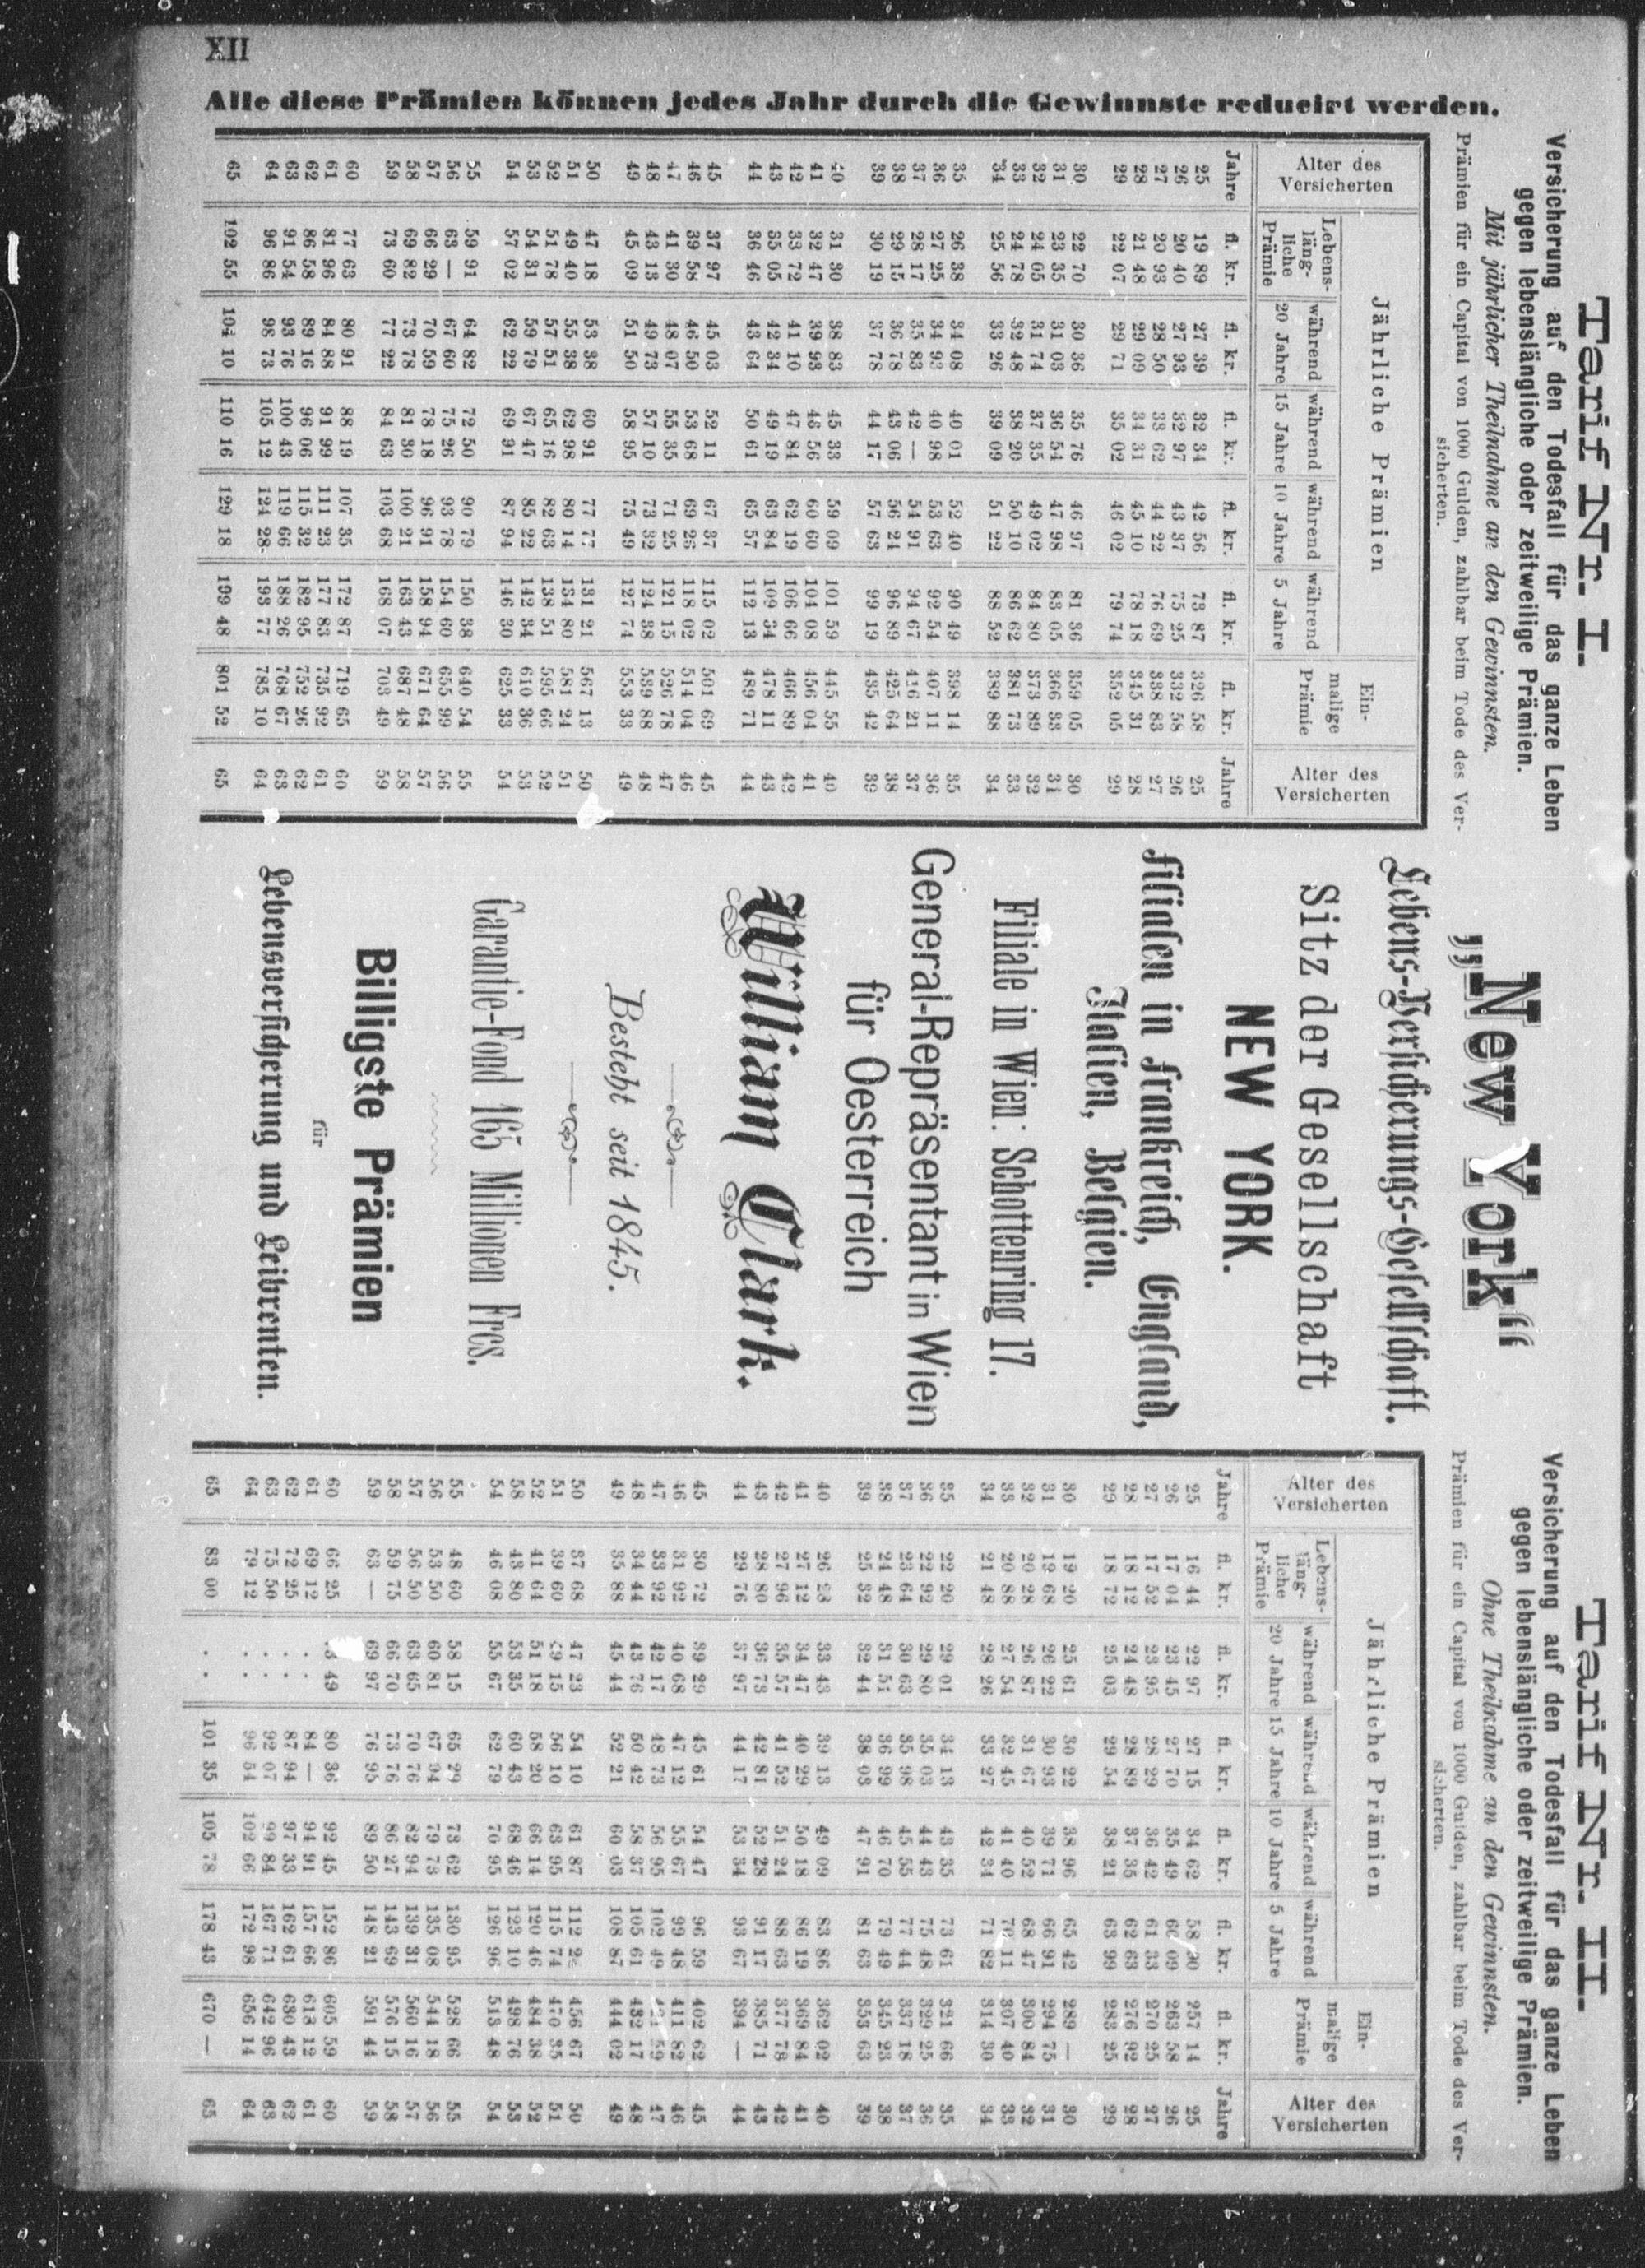 XII
Alle diese Prämien können jedes Jahr durch die Gewinnste reducirt werden.
Tarif Nr. I.
Versicherung auf den Todesfall für das ganze Leben
gegen lebenslängliche oder zeitweilige Prämien.
Mit jährlicher Theilnahme an den Gewinnsten.
Prämien für ein Capital von 1000 Gulden, zahlbar beim Tode des Ver-
sicherten.
Alter des Versicherten Jährliche Prämien Ein-malige Prämie Alter des Versicherten
Lebens-läng-liche Prämie während 20 Jahre während 15 Jahre während 10 Jahre während 5 Jahre
Jahre fl. kr. fl. kr. fl. kr. fl. kr. fl. kr. fl. kr. Jahre
25 19 89 27 39 32 34 42 56 73 87 326 58 25
26 20 40 27 93 32 97 43 37 75 25 332 58 26
27 20 93 28 50 33 62 44 22 76 69 338 83 27
28 21 48 29 09 34 31 45 10 78 18 345 31 28
29 22 07 29 71 35 02 46 02 79 74 352 05 29
30 22 70 30 36 35 76 46 97 81 36 359 05 30
31 23 35 31 03 36 54 47 98 83 05 366 33 31
32 24 05 31 74 37 35 49 02 84 80 373 89 32
33 24 78 32 48 38 20 50 10 86 62 381 73 33
34 25 56 33 26 39 09 51 22 88 52 389 88 34
35 26 38 34 08 40 01 52 40 90 49 398 14 35
36 27 25 34 93 40 98 53 63 92 54 407 11 36
37 28 17 35 83 42 — 54 91 94 67 416 21 37
38 29 15 36 78 43 06 56 24 96 89 425 64 38
39 30 19 37 78 44 17 57 63 99 19 435 42 39
40 31 30 38 83 45 33 59 09 101 59 445 55 40
41 32 47 39 93 46 56 60 60 104 08 456 04 41
42 33 72 41 10 47 84 62 19 106 66 466 89 42
43 35 05 42 34 49 19 63 84 109 34 478 11 43
44 36 46 43 64 50 61 65 57 112 13 489 71 44
45 37 97 45 03 52 11 67 37 115 02 501 69 45
46 39 58 46 50 53 68 69 26 118 02 514 04 46
47 41 30 48 07 55 35 71 25 121 15 526 78 47
48 43 13 49 73 57 10 73 32 124 38 539 88 48
49 45 09 51 50 58 95 75 49 127 74 553 33 49
50 47 18 53 38 60 91 77 77 131 21 567 13 50
51 49 40 55 38 62 98 80 14 134 80 581 24 51
52 51 78 57 51 65 16 82 63 138 51 595 66 52
53 54 31 59 79 67 47 85 22 142 34 610 36 53
54 57 02 62 22 69 91 87 94 146 30 625 33 54
55 59 91 64 82 72 50 90 79 150 38 640 54 55
56 63 — 67 60 75 26 93 78 154 60 655 99 56
57 66 29 70 59 78 18 96 91 158 94 671 64 57
58 69 82 73 78 81 30 100 21 163 43 687 48 58
59 73 60 77 22 84 63 103 68 168 07 703 49 59
60 77 63 80 91 88 19 107 35 172 87 719 65 60
61 81 96 84 88 91 99 111 23 177 83 735 92 61
62 86 58 89 16 96 06 115 32 182 95 752 26 62
63 91 54 93 76 100 43 119 66 188 26 768 67 63
64 96 86 98 73 105 12 124 28 193 77 785 10 64
65 102 55 104 10 110 16 129 18 199 48 801 52 65
„New York“
Lebens-Versicherungs-Gesellschaft.
Sitz der Gesellschaft
NEW YORK.
Filialen in Frankreich, England,
Italien, Belgien.
Filiale in Wien: Schottenring 17.
General-Repräsentant in Wien
für Oesterreich
William Clark.
Besteht seit 1845.
Garantie-Fond 165 Millionen Frcs.
Billigste Prämien
für
Lebensversicherung und Leibrenten.
Tarif Nr. II.
Versicherung auf den Todesfall für das ganze Leben
gegen lebenslängliche oder zeitweilige Prämien.
Ohne Theilnahme an den Gewinnsten.
Prämien für ein Capital von 1000 Gulden, zahlbar beim Tode des Ver-
sicherten.
Alter des Versicherten Jährliche Prämien Ein-malige Prämie Alter des Versicherten
Lebens-läng-liche Prämie während 20 Jahre während 15 Jahre während 10 Jahre während 5 Jahre
Jahre fl. kr. fl. kr. fl. kr. fl. kr. fl. kr. fl. kr. Jahre
25 16 44 22 97 27 15 34 62 58 257 14 25
26 17 04 23 45 27 70 35 49 60 09 263 58 26
27 17 52 23 95 28 29 36 42 61 33 270 25 27
28 18 12 24 48 28 89 37 35 62 63 276 92 28
29 18 72 25 03 29 54 38 21 63 99 283 25 29
30 19 20 25 61 30 22 38 96 65 42 289 — 30
31 19 68 26 22 30 93 39 71 66 91 294 75 31
32 20 28 26 87 31 67 40 52 68 47 300 84 32
33 20 88 27 54 32 45 41 40 70 11 307 40 33
34 21 48 28 26 33 27 42 34 71 82 314 30 34
35 22 20 29 01 34 13 43 35 73 61 321 66 35
36 22 92 29 80 35 03 44 43 75 48 329 25 36
37 23 64 30 63 35 98 45 55 77 44 337 18 37
38 24 48 31 51 36 99 46 70 79 49 345 23 38
39 25 32 32 44 38 03 47 91 81 63 353 63 39
40 26 28 33 43 39 13 49 09 83 86 362 02 40
41 27 12 34 47 40 29 50 18 86 19 369 84 41
42 27 96 35 57 41 52 51 24 88 63 377 78 42
43 28 80 36 73 42 81 52 28 91 17 385 71 43
44 29 76 37 97 44 17 53 34 93 67 394 — 44
45 30 72 39 29 45 61 54 47 96 59 402 62 45
46 31 92 40 68 47 12 55 67 99 48 411 82 46
47 33 92 42 17 48 73 56 95 102 49 47
48 34 44 43 76 50 42 58 37 105 61 432 17 48
49 35 88 45 44 52 21 60 03 108 87 444 02 49
50 37 68 47 23 54 10 61 87 112 456 67 50
51 39 60 49 15 56 10 63 95 115 74 470 35 51
52 41 64 51 18 58 20 66 14 120 46 484 38 52
53 43 80 53 35 60 43 68 46 123 10 498 76 53
54 46 08 55 67 62 79 70 95 126 96 513 48 54
55 48 60 58 15 65 29 73 62 130 95 528 66 55
56 53 50 60 81 67 94 79 73 135 08 544 18 56
57 56 50 63 65 70 76 82 94 139 31 560 16 57
58 59 75 66 70 73 76 86 27 143 69 576 15 58
59 63 — 69 97 76 95 89 50 148 21 591 44 59
60 66 25 49 80 36 92 45 152 86 605 59 60
61 69 12 . . 84 — 94 91 157 66 618 12 61
62 72 25 . . 87 94 97 33 162 61 630 43 62
63 75 50 . . 92 07 99 84 167 71 642 96 63
64 79 12 . . 96 54 102 66 172 98 656 14 64
65 83 00 . . 101 35 105 78 178 43 670 — 65